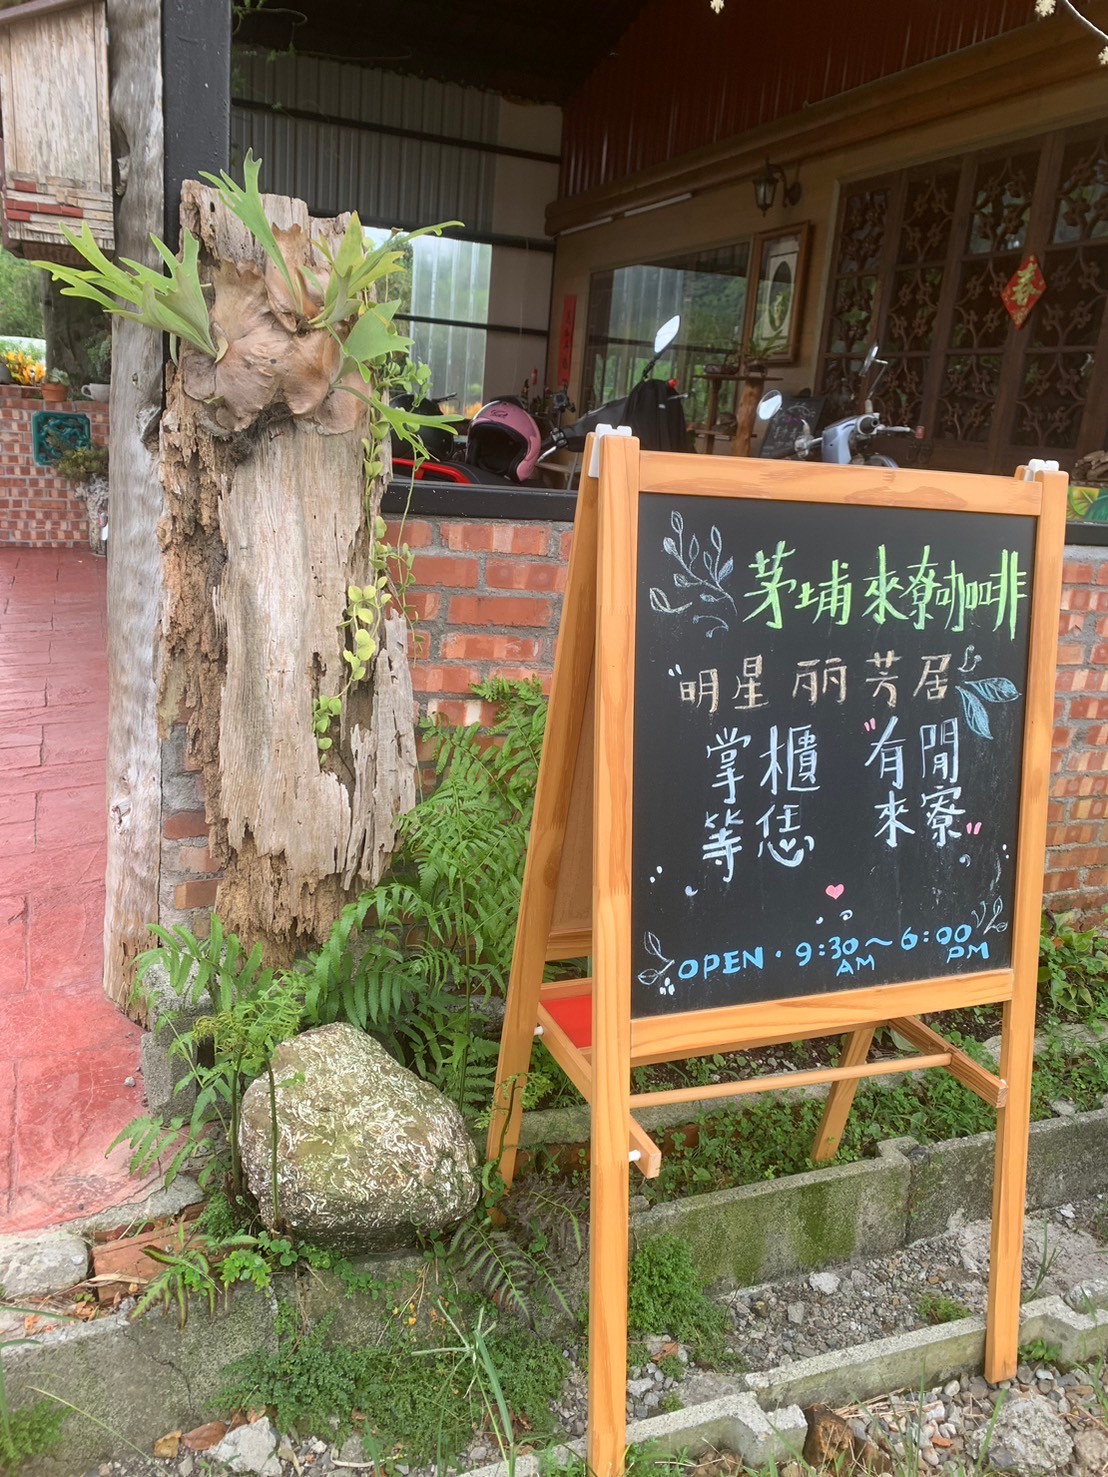 茅埔來寮咖啡
"明星 丽芳居"
掌櫃 "有閒
等恁 來寮"
OPEN・9:30～6:00
AM PM
春